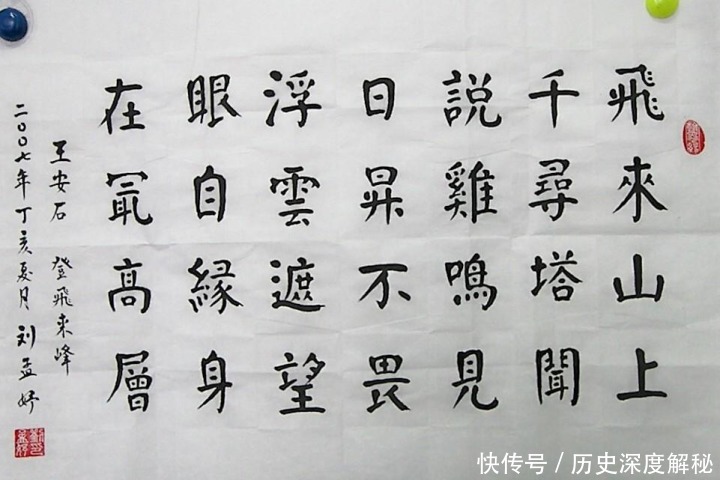 飛來山上
千尋塔聞
説雞鳴見
日昇不畏
浮雲遮望
眼自縁身
在冣高層
王安石 登飛来峰
二〇〇七年丁亥夏月 刘孟妤
快传号/历史深度解秘